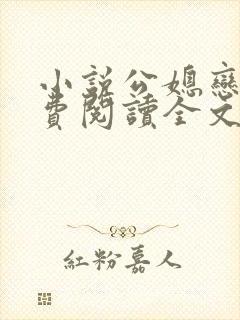 小説公媳戀
費閱讀全文
紅粉嘉人